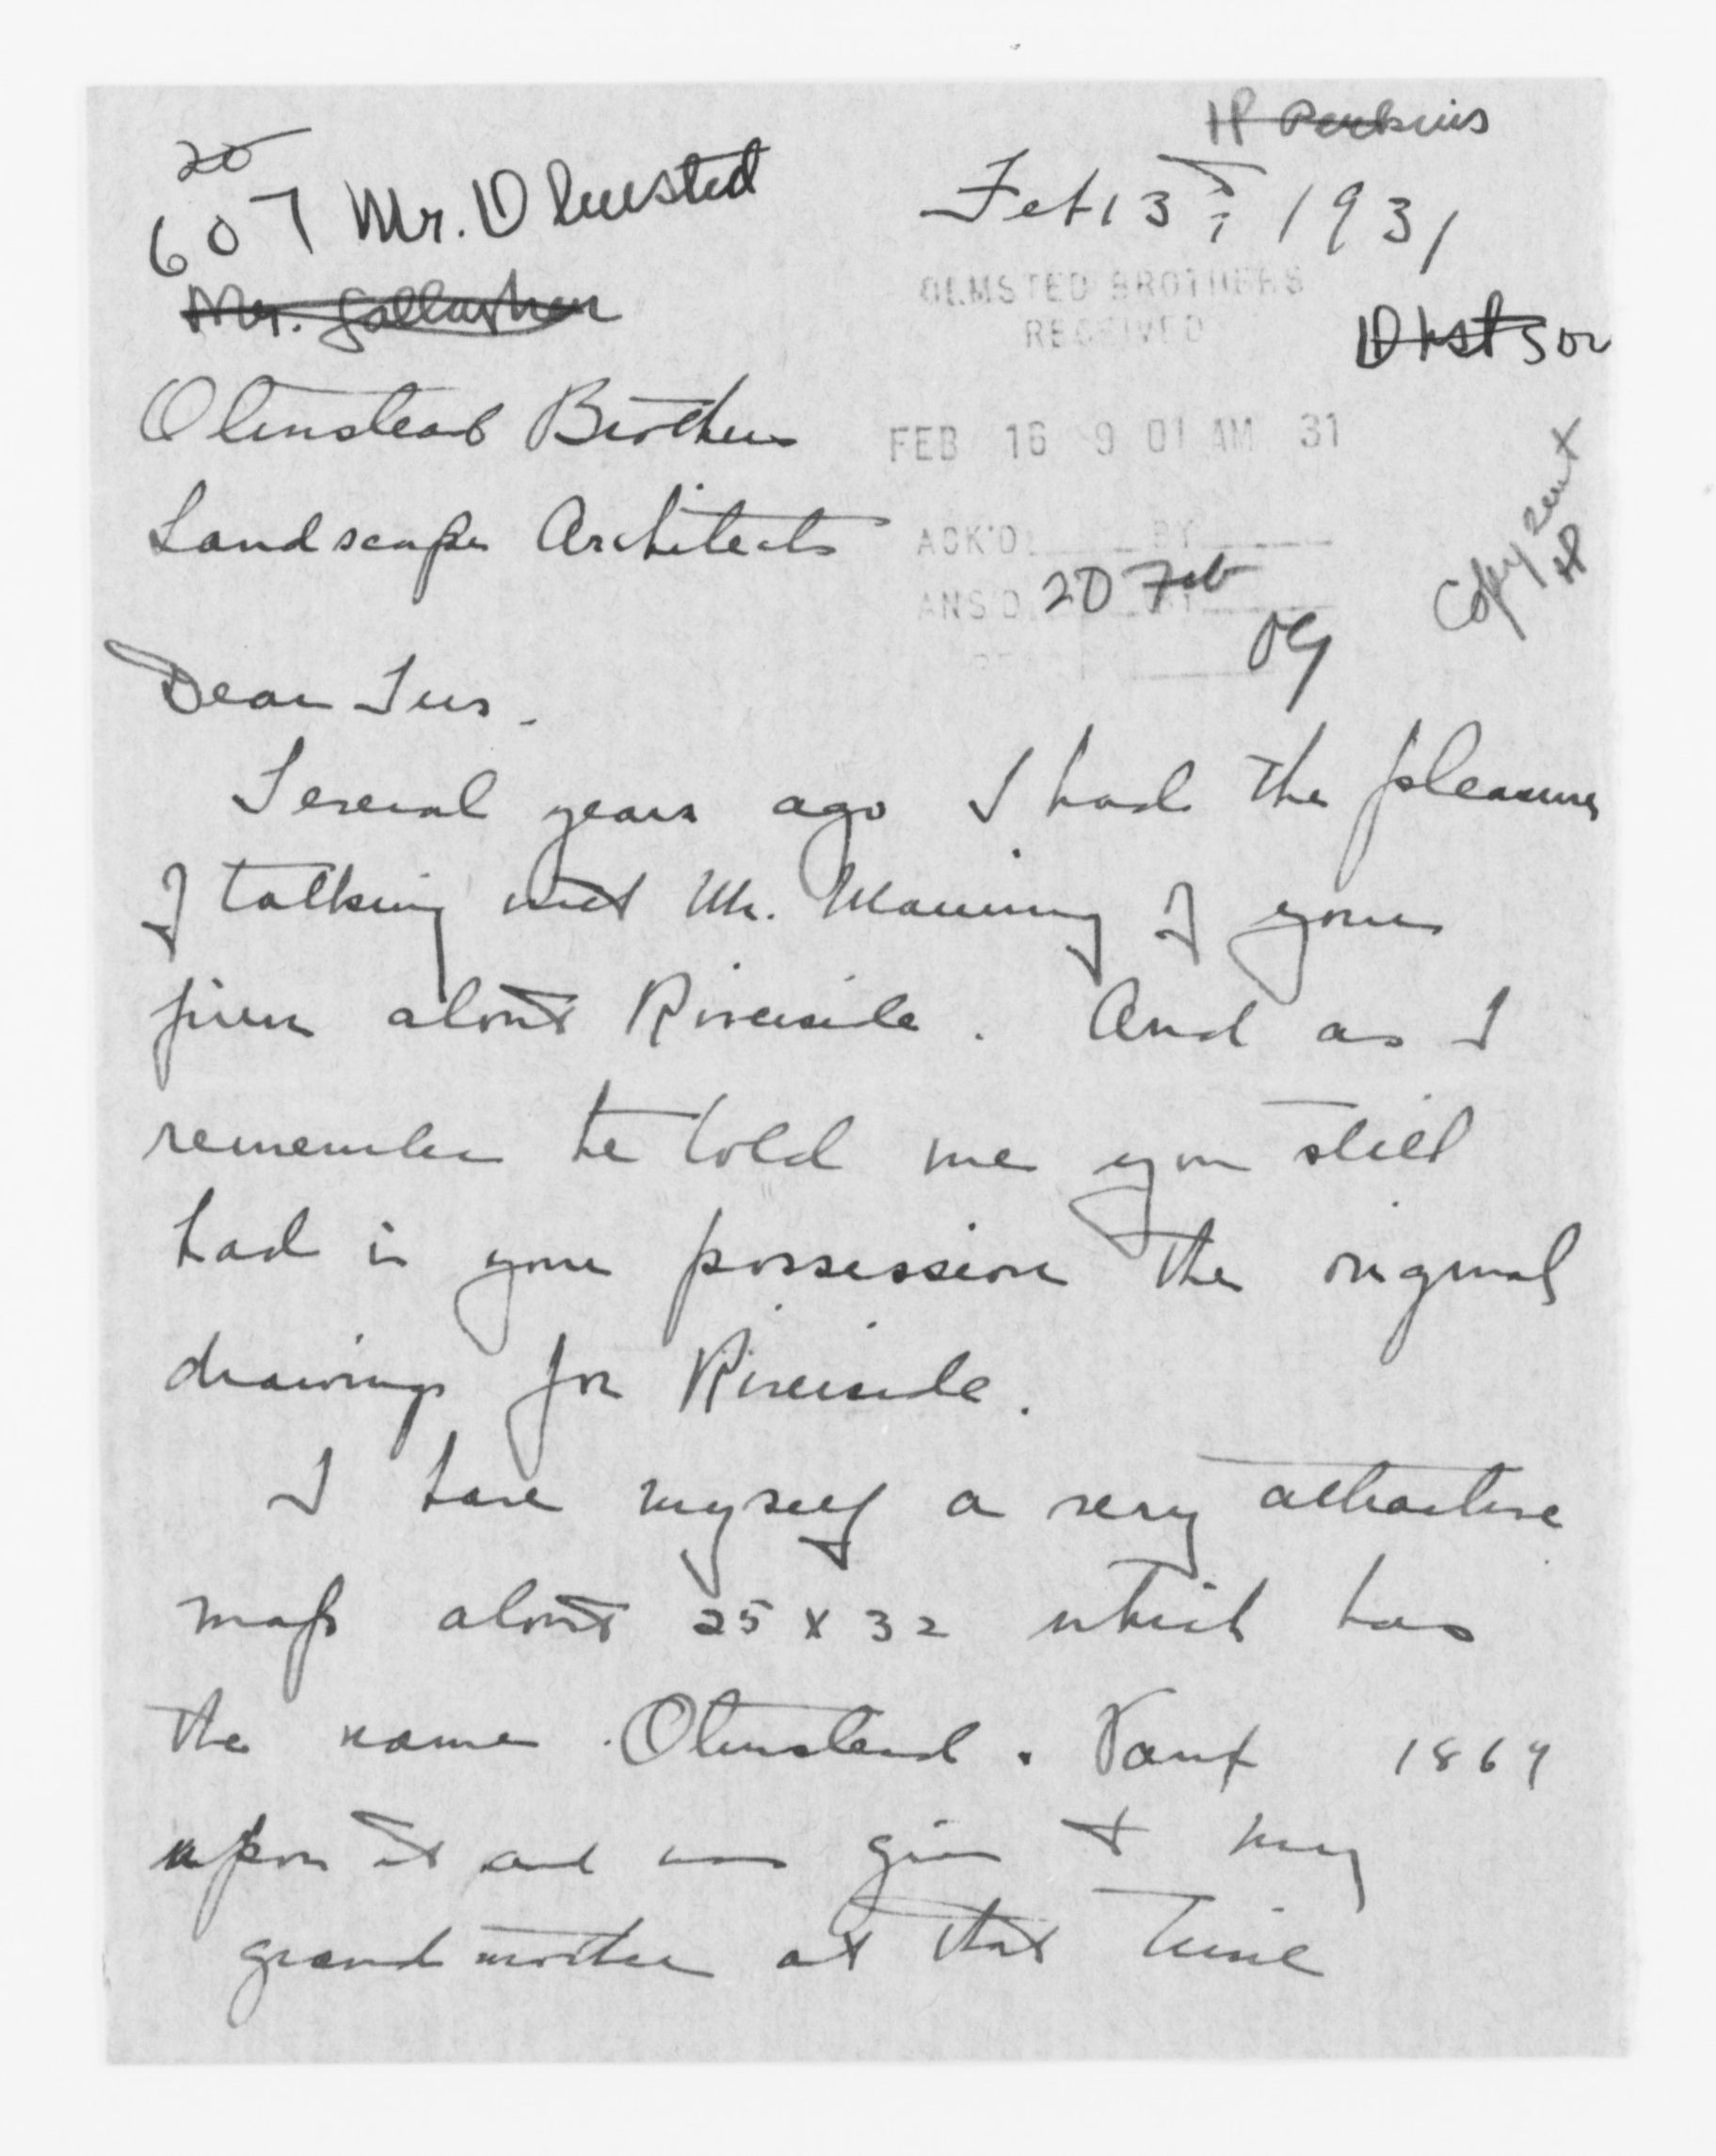 HP Perkins
20
607 Mr. Olmsted
Feb 13th 1931
Mr. Gallagher
OLMSTED BROTHERS
RECEIVED
Olmstead Brothers
FEB 16 9 01 AM 31
Landscape Architects
Copy sent
HP
ACK'D. BY
ANS'D. 20 Feb
Dear Sirs.
Several years ago I had the pleasure
of talking with Mr. Manning of your
firm about Riverside. And as I
remember he told me you still
had in your possession the original
drawings for Riverside.
I have myself a very attractive
map about 25 x 32 which has
the name Olmstead. Vaux 1869
upon it and was given to my
grandmother at that time